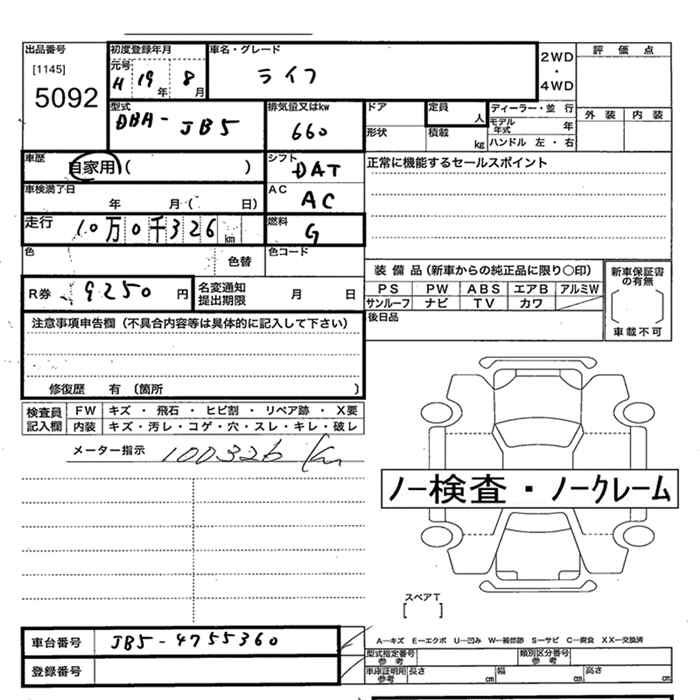 出品番号 初度登録年月 車名・グレード 2WD・4WD 評価点
[1145] 元号 H 19年 8月 ライフ
5092
型式 DBA-JB5 排気量又はkw 660 ドア 定員 人 ディーラー・並 行 外装 内装
形状 積載 kg モデル年式 年
ハンドル 左・右
車歴 自家用( ) シフト DAT 正常に機能するセールスポイント
車検満了日 年 月( 日) AC AC
走行 10万0千326km 燃料 G
色 色替 色コード
装備品(新車からの純正品に限り○印) 新車保証書の有無
R券 9250円 名変通知提出期限 月 日 PS PW ABS エアB アルミW
サンルーフ ナビ TV カワ
注意事項申告欄(不具合内容等は具体的に記入して下さい) 後日品 車載不可
修復歴 有 (箇所 )
検査員記入欄 FW キズ・飛石・ヒビ割・リペア跡・X要
内装 キズ・汚レ・コゲ・穴・スレ・キレ・破レ
メーター指示 100326 km
ノー検査・ノークレーム
スペアT
[ ]
車台番号 JB5-4755360 A―キズ E―エクボ U―凹み W―補修跡 S―サビ C―腐食 XX―交換済
型式指定番号 参考 類別区分番号 参考
登録番号 車庫証明用 参考 長さ cm 幅 cm 高さ cm